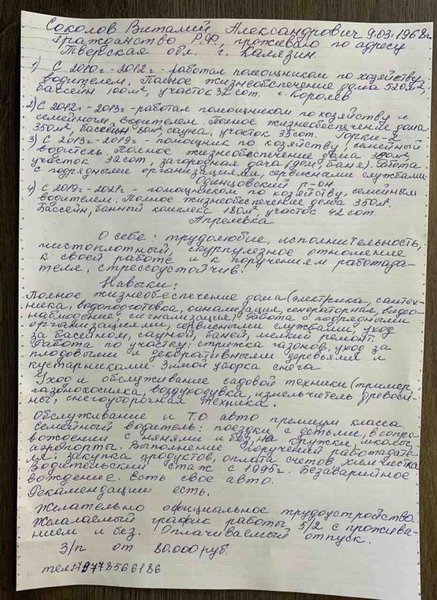 Соколов Виталий Александрович 9.03.1968г.
Гражданство РФ, проживаю по адресу
Тверская обл. г. Калязин.
1) С 2010г-2012г- работал помощником по хозяйству,
водителем, Полное жизнеобеспечение дома 520м²,
бассейн 100м², участок сот. г. Королёв
2) С 2012г-2013г-работал помощником по хозяйству и
семейным водителем. Полное жизнеобеспечение дома
350м², бассейн, сауна, участок сот. Горки-2
3) С 2013г-2019г- помощник по хозяйству, семейной
водитель. Полное жизнеобеспечение дома
участок 32 сот, загородная дача (дом, баня). Работа
с подрядными организациями, сервисными службами.
Одинцовский р-он
4) С 2019г-2021г- помощником по хозяйству, семейным
водителем. Полное жизнеобеспечение дома 350м².
Бассейн, банный комплекс 180м², участок 42 сот.
Апрелевка
О себе: трудолюбие, исполнительность,
чистоплотный, скурпулезное отношение
к своей работе и к поручениям работода-
теля, стрессоустойчив.
Навыки:
Полное жизнеобеспечение дома (электрика, сантех-
ника, водоподготовка, видео-
наблюдение, сигнализация) Работа с подрядными
организациями, сервисными службами, уход
за бассейном, сауной, баней, мелкий ремонт.
Работа по участку: стрижка газонов, уход за
плодовыми и декоративными деревьями и
кустарниками. Зимой уборка снега
Уход и обслуживание садовой техники (триммер,
газонокосилка, воздуходувка, измельчитель древеси-
ны, снегоуборочная техника.
Обслуживание и Т.О авто премиум класса
семейный водитель: поездки с детьми, в сопро-
вождении с нянями и без, на кружки, школа,
аэропорты. Выполнение поручений работодате-
ля: закупка продуктов, оплата счетов, химчистка
Водительский стаж с 1995г. Безаварийное
вождение. Есть свое авто.
Рекомендации есть.
Желательно официальное трудоустройство.
Желаемый график работы 5/2 с прожива-
нием и без. Оплачиваемый отпуск.
З/п от 80.000 руб
тел.